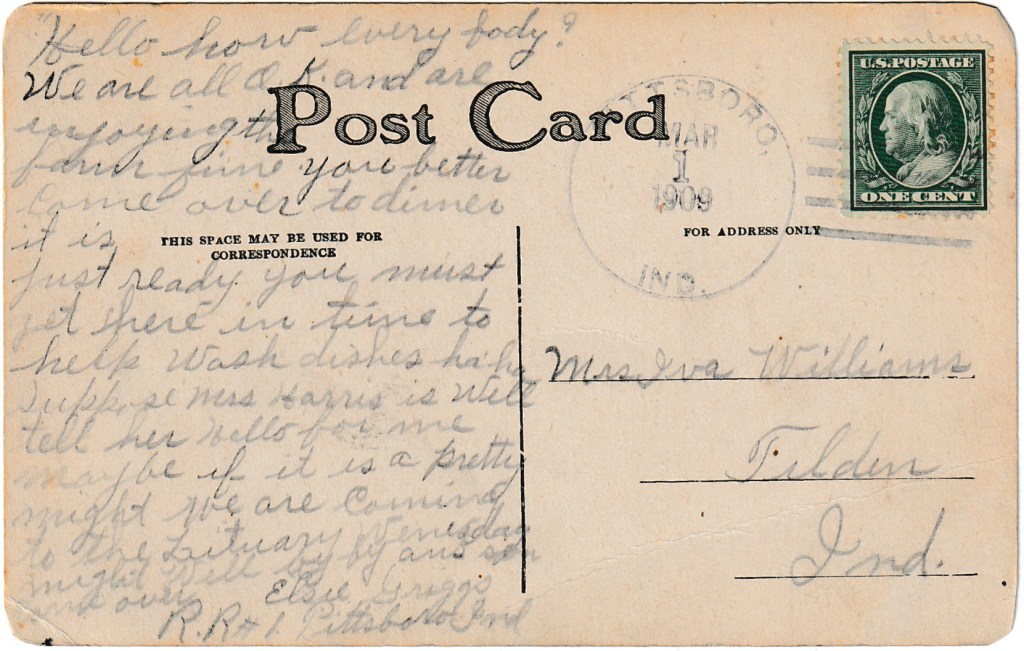 "Hello how every body?
We are all O.K. and are
injoying the
farm fine you better
Come over to dinner
it is
just ready you must
get here in time to
help Wash dishes ha ha
Suppose Mrs Harris is Well
tell her Hello for me
maybe if it is a pretty
night We are Coming
to the Lituary Wensday
night Well by by and
over
Elsie Griggs
R.R # 1. Pittsboro Ind
Post Card
THIS SPACE MAY BE USED FOR
CORRESPONDENCE
FOR ADDRESS ONLY
PITTSBORO,
MAR
1
1909
IND.
U.S. POSTAGE
ONE CENT
Mrs Iva Williams
Tilden
Ind.